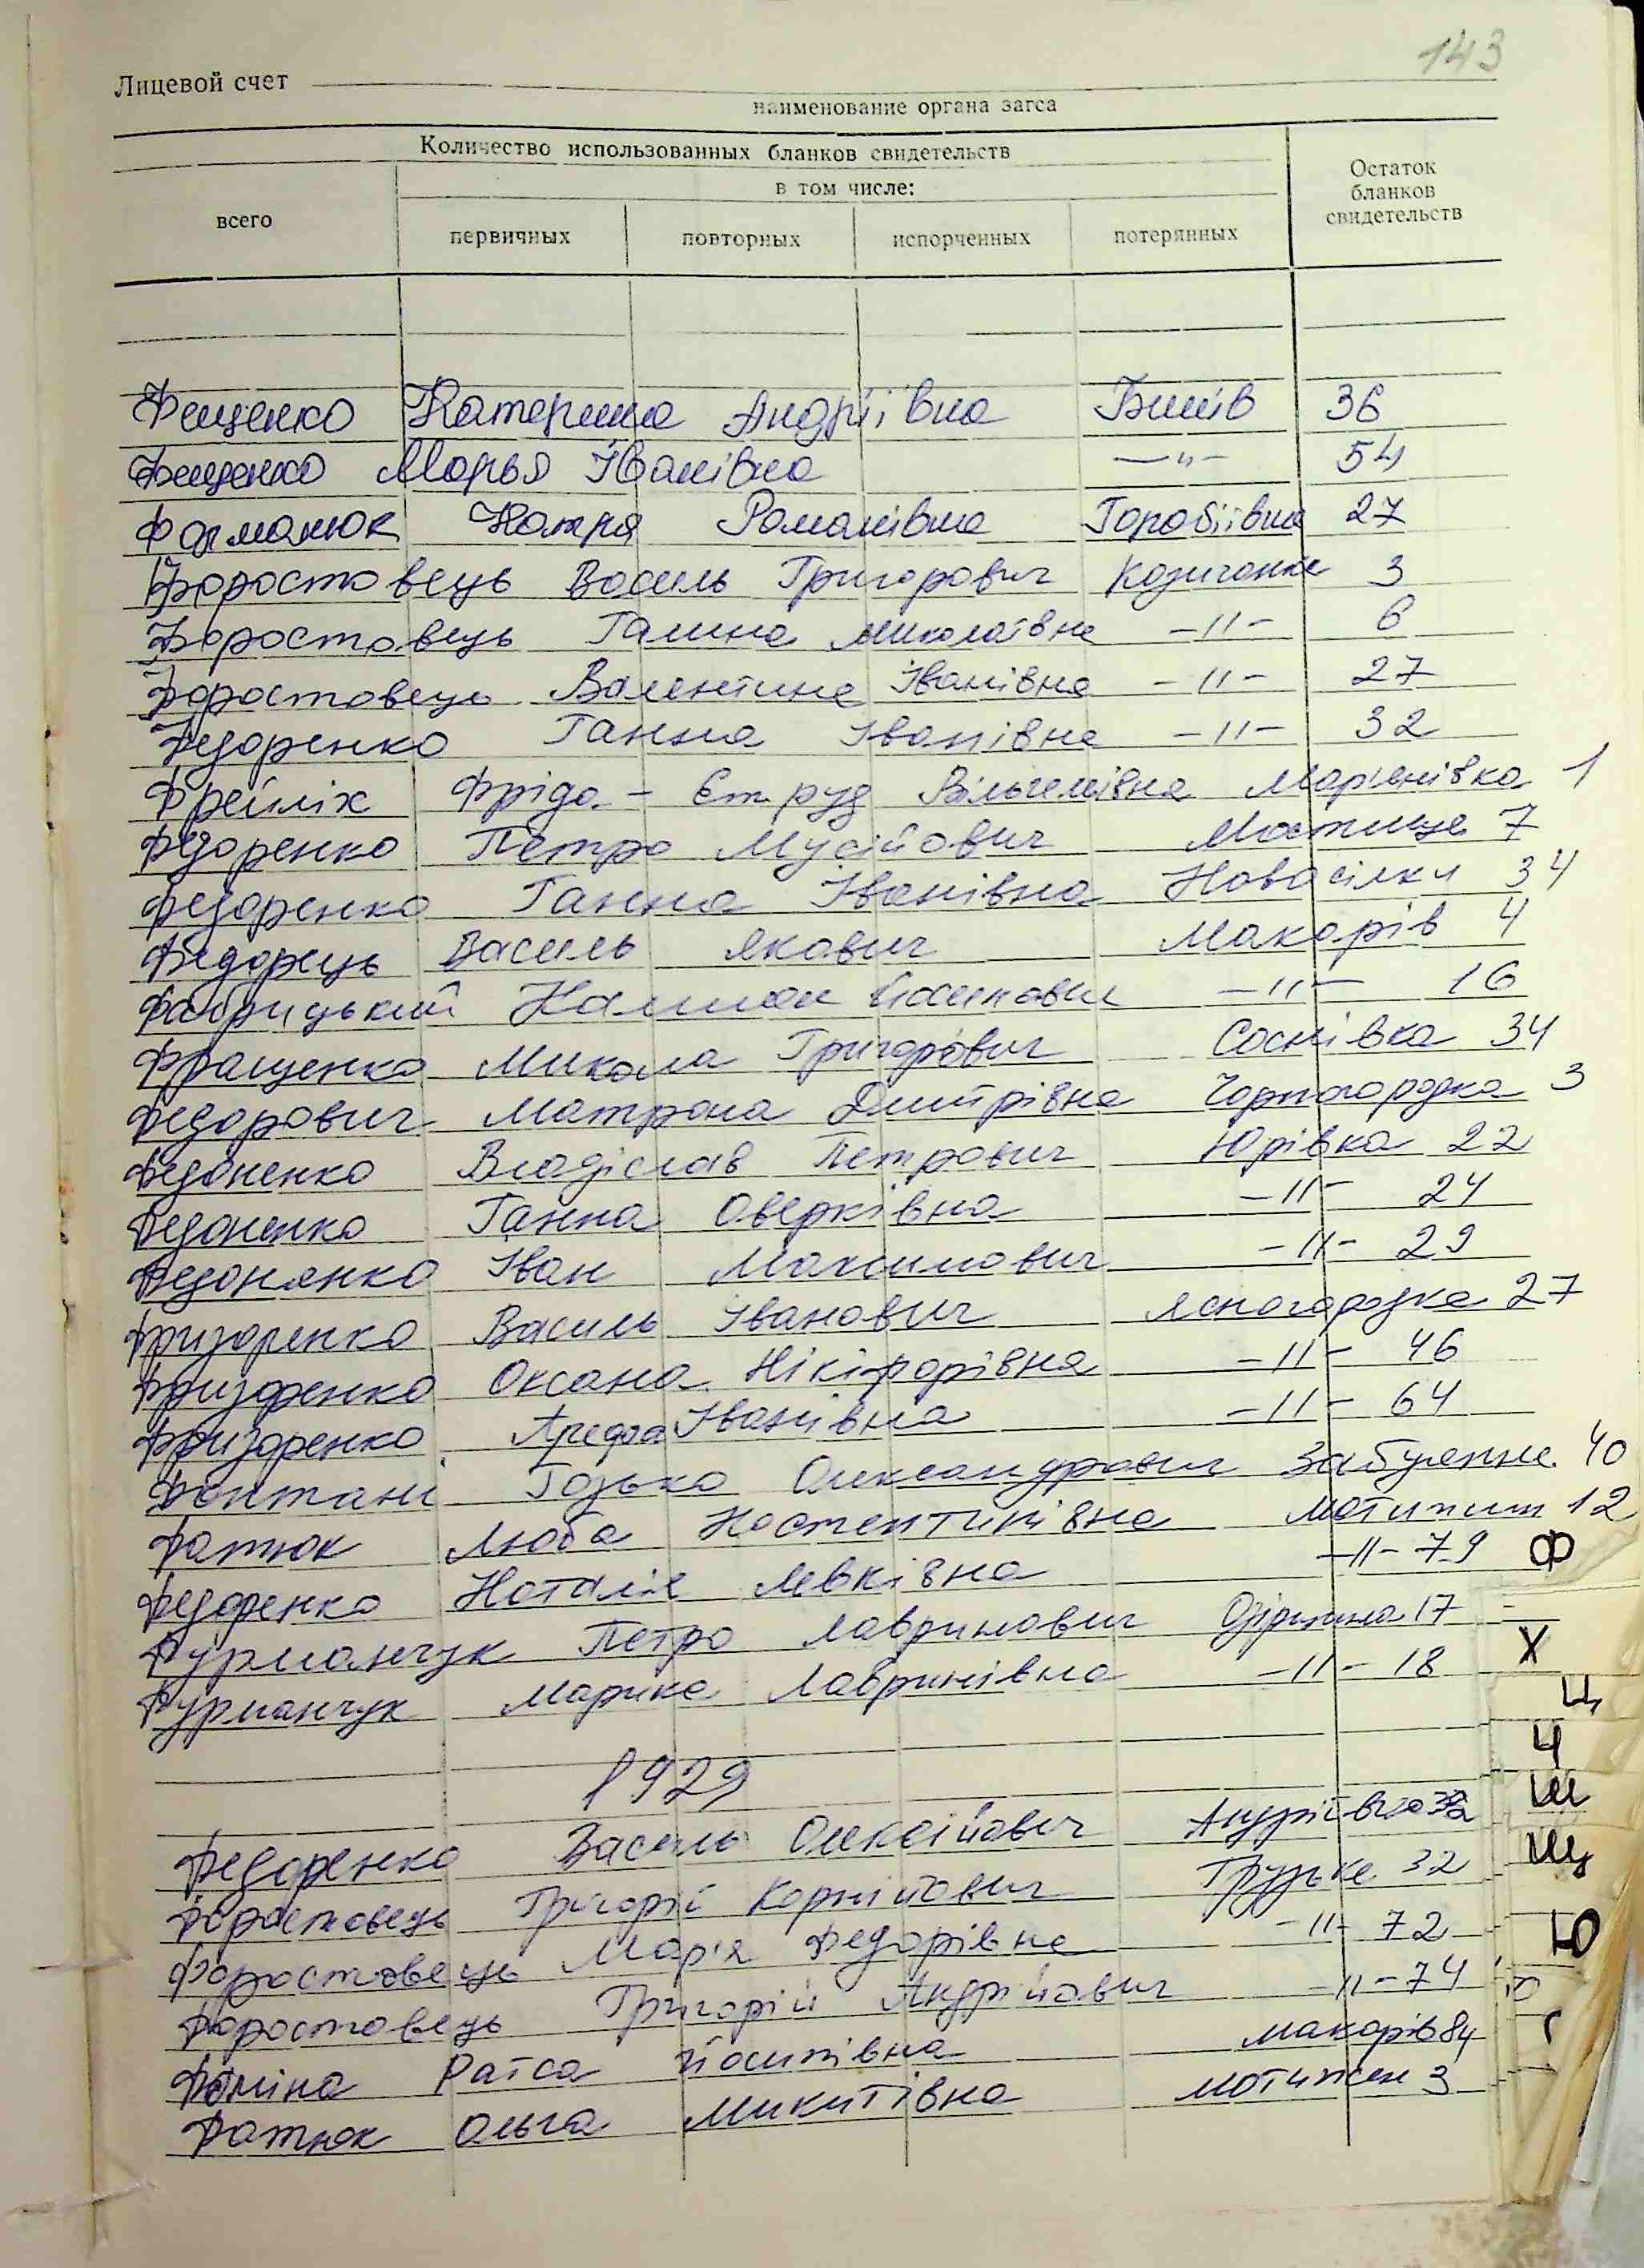 143
Лицевой счет
наименование органа загса
Количество использованных бланков свидетельств
Остаток бланков свидетельств
в том числе:
всего
первичных повторных испорченных потерянных
Фещенко Катерина Андріївна Бишів 36
Фещенко Марья Іванівна —"— 54
Фарманюк Романівна Горобіївка 27
Форостовець Василь Григорович Козичанка 3
Форостовець Галина Миколаївна —11— 6
Форостовець Валентина Іванівна —11— 27
Федоренко Ганна Іванівна —11— 32
Фрейліх Фріда - Вільгелмівна Мар'янівка 1
Федоренко Петро Мусійович Мостище 7
Федоренко Ганна Іванівна Новосілки 34
Федорець Василь Якович Макарів 4
Фабрицький —11— 16
Фращенко Микола Григорович Соснівка 34
Федорович Матрона Дмитрівна Чорногородка 3
Федоненко Владіслав Петрович Юрівка 22
Федоненко Ганна Оверківна —11— 24
Федонянко Іван Максимович —11— 29
Фридоренко Василь Іванович Ясногородка 27
Фридоренко Оксана Нікіфорівна —11— 46
Фридоренко Іванівна —11— 64
Фонтані Олександрович Забуяння 40
Фатюк Люба Костентинівна Мотижин 12
Федоренко Наталія Левківна —11— 79
Ф
Фурманчук Петро Лавринович 17
Фурманчук Марика Лавринівна —11— 18
Х
Ц
Ч
1929
Ш
Федоренко Василь Олексійович Андріївка
Щ
Форостовець Григорій Корнійович Грузьке 32
Форостовець Мар'я Федорівна —11— 72
Ю
Форостовець Григорій Андрійович —11— 74
Фоміна Раїса Йосипівна Макарів 84
Фатюк Ольга Микитівна Мотижин 3